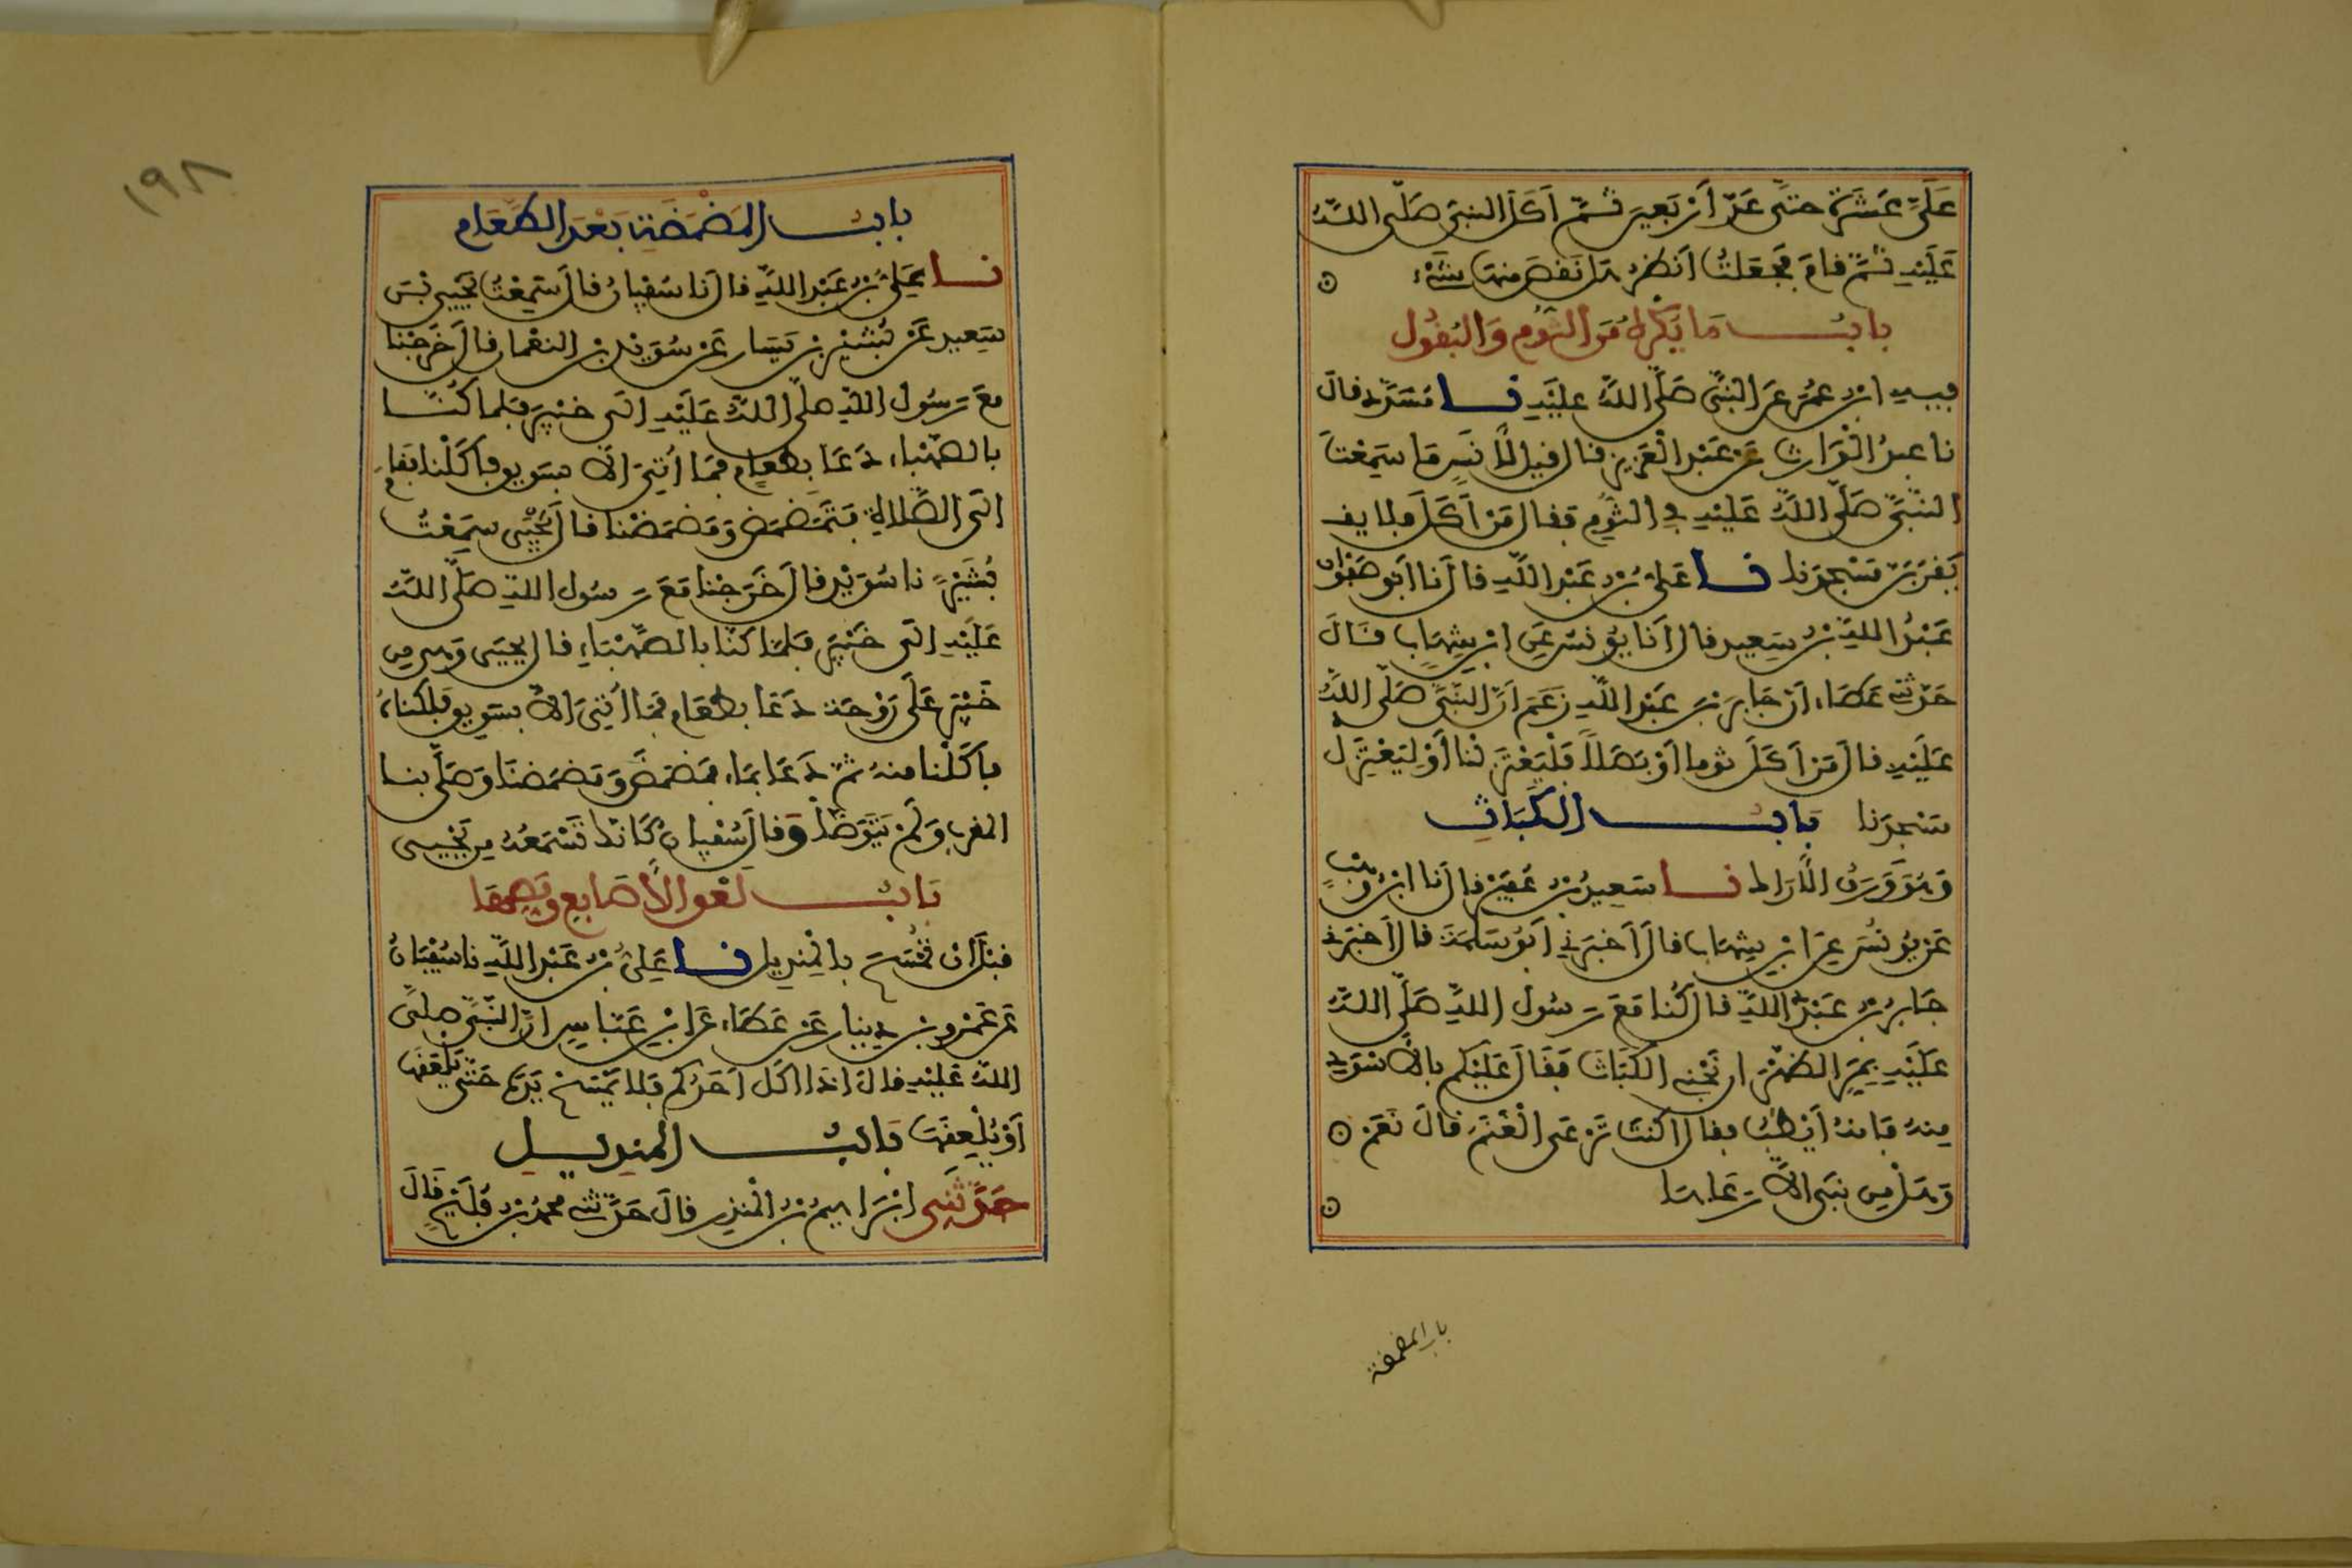 عَلَيَّ عَشَرَةً حَتَّى عَدَّ أَرْبَعِينَ ثُمَّ أَكَلَ النبي صَلَّى اللهُ
عَلَيْهِ ثُمَّ قامَ فَجَعَلتُ أَنظُرُ هَل نَقَصَ منها شَيْءٌ
بابُ مَا يُكْرَهُ مِنَ الثُّومِ وَالبُقُولِ
فيهِ ابنُ عُمَرَ عَنِ النَّبِيِّ صَلَّى اللهُ عَلَيْهِ نا مُسَدَّدٌ قالَ
نا عبدُ الْوَارِثِ عَنْ عَبْدِ الْعَزِيزِ قال قيلَ لأَنَسٍ مَا سَمِعْتَ
النَّبِيَّ صَلَّى اللهُ عَلَيْهِ في الثُّومِ فقال مَنْ أَكَلَ فلا يق
يَقْرَبَنَّ مَسْجِدَنا نا عَلِيُّ بْنُ عَبْدِ اللهِ قالَ نا أبو صَفْوَانَ
عَبْدُ اللهِ بْنُ سَعِيدٍ قال أَنا يُونُسُ عَنِ ابْنِ شِهَابٍ قَالَ
حَدَّثَنِي عَطَاءٌ أنَّ جَابِرَ بْنَ عَبْدِ اللهِ زَعَمَ أَنَّ النَّبِيَّ صَلَّى اللهُ
عَلَيْهِ قالَ مَنْ أَكَلَ ثُوما أَوْ بَصَلاً فَلْيَعْتَزِلْنا أَوْ لِيَعْتَزِلْ
مَسْجِدَنا بَابُ الكَبَاثِ
وَهُوَ وَرَقُ الأَرَاكِ نا سَعِيدُ بْنُ عُفَيْرٍ قالَ نا ابْنُ وَهْبٍ
عَنْ يُونُسَ عَنِ ابْنِ شِهَابٍ قالَ أَخْبَرَنِي أَبُو سَلَمَةَ قال أَخْبَرَنِي
جَابِرُ بْنُ عَبْدِ اللهِ قالَ كُنا مَعَ رَسُولِ اللهِ صَلَّى اللهُ
عَلَيْهِ بِمَرِّ الظَّهْرَانِ نَجْنِي الكَبَاثَ فَقَالَ عَلَيْكُم بِالأَسْوَدِ
مِنهُ فَإِنهُ أَيْطَبُ فقال أكنتَ تَرْعَى الْغَنَمَ قالَ نَعَمْ
وَهَلْ مِن نَبِيٍّ إلاَّ رَعَاهَا
باب المضمضة
١٩٨
بابُ المَضْمَضَةِ بَعْدَ الطَّعَامِ
نا عَلِيُّ بْنُ عَبْدِ اللهِ قالَ نا سُفْيانُ قالَ سَمِعْتُ يَحْيَى بْنَ
سَعِيدٍ عَنْ بُشَيْرِ بْنِ يَسَارٍ عَنْ سُوَيْدِ بْنِ النعْمانِ قالَ خَرَجْنا
مَعَ رَسُولِ اللهِ صلَّى اللهُ عَلَيْهِ إلَى خَيْبَرَ فَلما كُنَّا
بِالصَّهْباءِ دَعَا بِطَعَامٍ فَمَا أُتِيَ إلاَّ بسَوِيقٍ فأَكَلْنا فقامَ
إلَى الصَّلاةِ فَتَمَضْمَضَ وَمَضْمَضْنا قالَ يَحْيَى سَمِعْتُ
بُشَيْرًا نا سُوَيْدٌ قالَ خَرَجْنا مَعَ رَسُولِ اللهِ صَلَّى اللهُ
عَلَيْهِ إلَى خَيْبَرَ فَلَمَّا كُنَّا بِالصَّهْبَاءِ قال يحيَى وَهي مِن
خَيْبَرَ عَلَى رَوْحَةٍ دَعَا بِطَعَامٍ فَمَا أُتِيَ إلاَّ بسَوِيقٍ فَلُكْناهُ
فأَكَلْنا منهُ ثُمَّ دَعَا بِمَاءٍ فَمَضْمَضَ وَمَضْمَضنَا وَصَلَّى بنا
المغرب وَلَمْ يَتَوَضَّأْ وَقالَ سُفْيانُ كَأَنَّكَ تَسْمَعُهُ مِن يَحْيى
بَابُ لَعْقِ الأَصَابِعِ وَمَصِّهَا
قبْلَ أنْ تُمْسَحَ بِالْمِنْدِيلِ نا عَلِيُّ بْنُ عَبْدِ اللهِ نا سُفْيَانُ
عَن عَمْرِو بنِ دِينارٍ عَنْ عَطَاءٍ عَنِ ابْنِ عَبَّاسٍ أنَّ النَّبِيَّ صلَّى
اللهُ عَلَيْهِ قالَ إذا أكَلَ أَحَدُكُم فَلا يَمْسَحْ يَدَهُ حَتَّى يَلْعَقَهَا
أَوْ يُلْعِقَهَا بَابُ المِنْدِيلِ
حَدَّثَنِي إبْرَاهيمُ بنُ المُنْذِرِ قالَ حَدَّثَنِي محمدُ بنُ فُلَيْحٍ قالَ